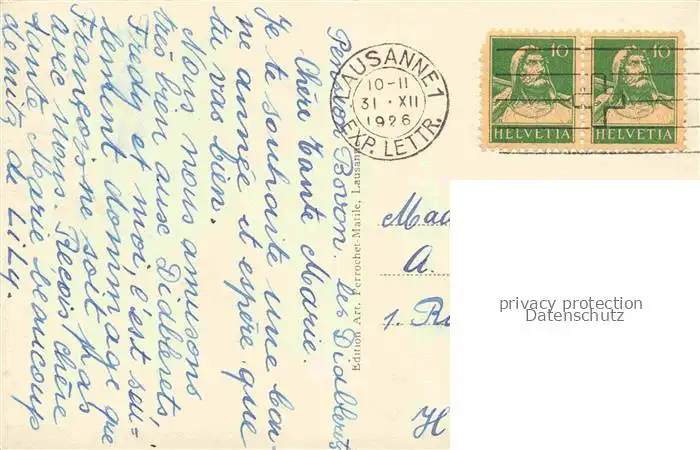 Pension Bovon. Les Diablerets
Chère Tante Marie.
Je te souhaite une bon-
ne année et espère que
tu vas bien.
Nous nous amusons
très bien aux Diablerets,
Fredy et moi, c'est seu-
lement dommage que
François ne soit pas
avec nous. Reçois, chère
tante Marie beaucoup
de mitz de Lily.
Edition Art. Perrochet-Matile, Lausanne
LAUSANNE 1
10-11
31 · XII
1926
EXP. LETTR.
10 10
HELVETIA HELVETIA
Mad
A.
1. R
H
privacy protection
Datenschutz